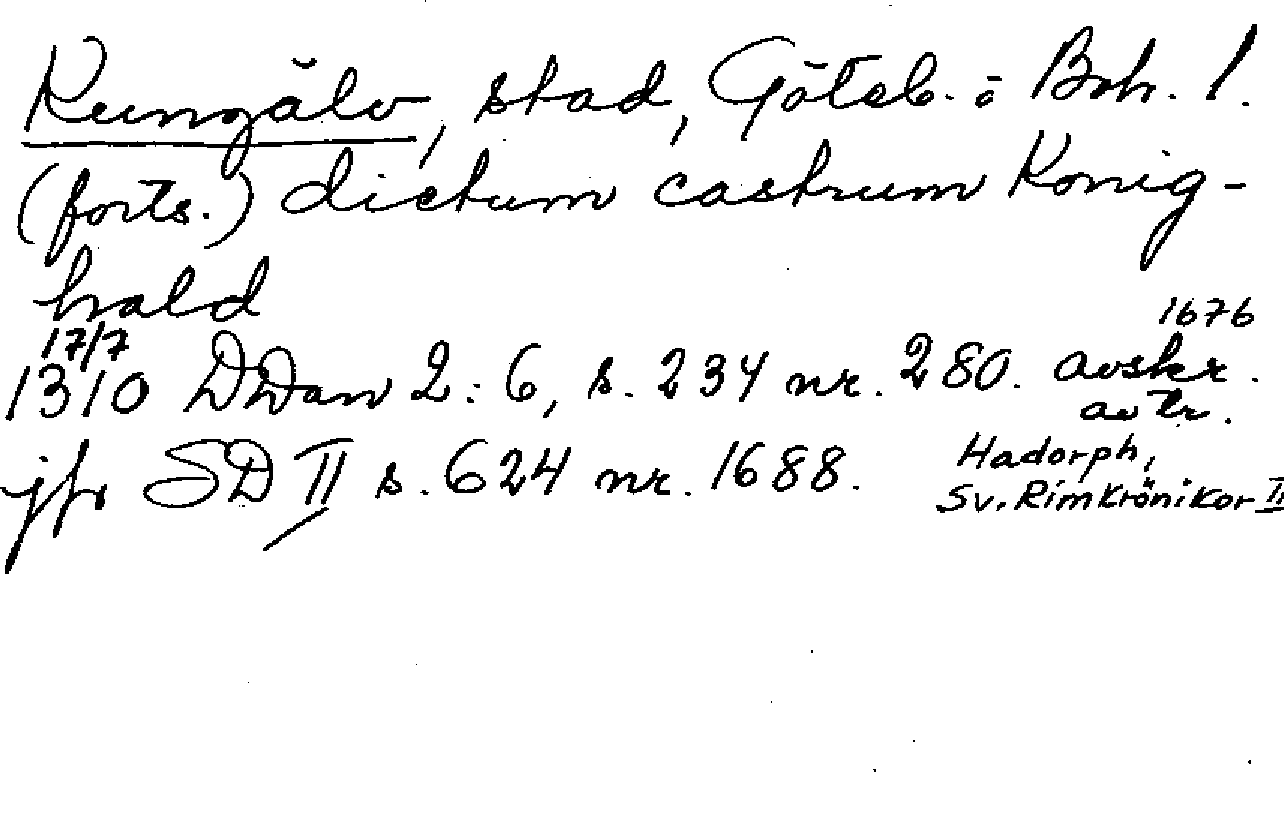 Kungälv, stad, Göteb. o Boh. l.
(forts.) dictum castrum Konig-
hald
17/7 1676
1310 DDan 2:6, s. 234 nr. 280. avskr.
av tr.
jfr SD II s. 624 nr. 1688. Hadorph,
Sv. Rimkrönikor II